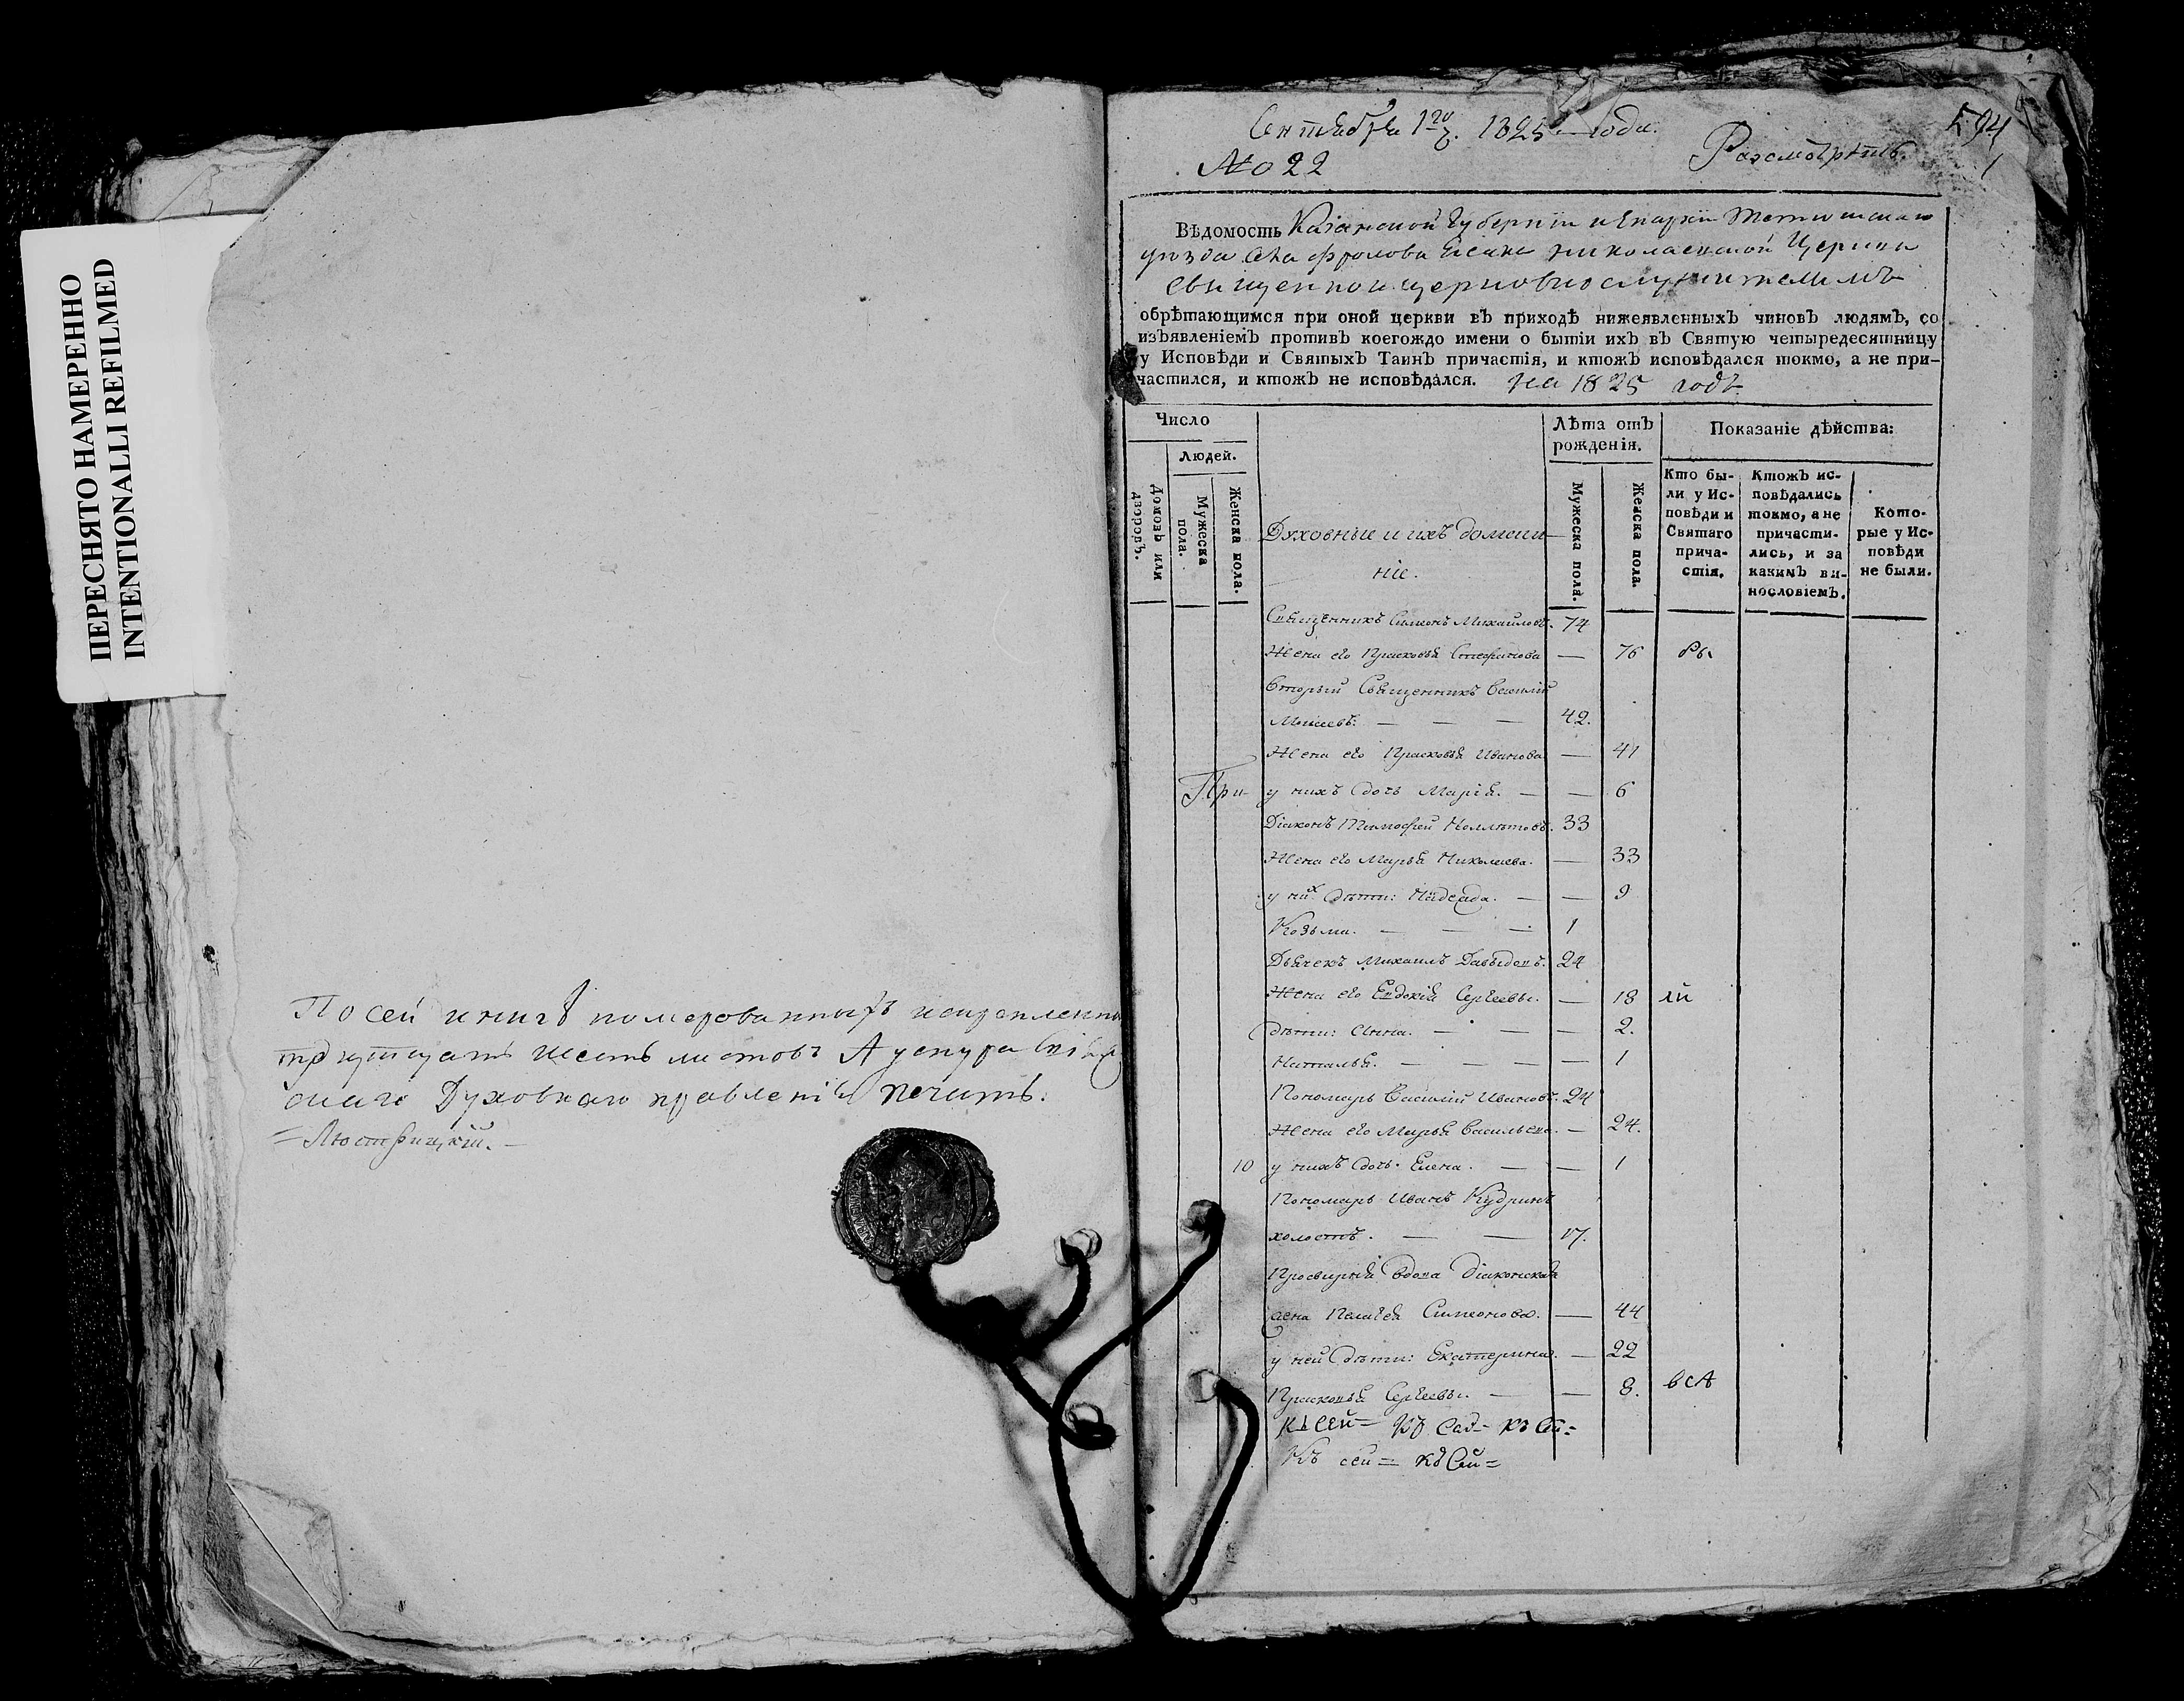 ПЕРЕСНЯТО НАМЕРЕННО
INTENTIONALLI REFILMED
По сей книгѣ номерованныхъ
шесть листовъ
Духовнаго правленія печать.
Сентября 1го 1825 года.
№ 22
Разсмотрѣть.
594
1
Вѣдомость Казанской Губерніи и Епархіи Тетюшскаго
уѣзда села Фролова Николаевской Церкви
священно и церковно служителямъ
обрѣтающимся при оной церкви въ приходѣ нижеявленныхъ чиновъ людямъ, со
изъявленіемъ противъ коегождо имени о бытіи ихъ въ Святую четыредесятницу
у Исповѣди и Святыхъ Таинъ причастія, и ктожъ исповѣдался токмо, а не при-
частился, и ктожъ не исповѣдался. на 1825 годъ
Число
Людей.
Домовъ или дворовъ.
Мужеска пола.
Женска пола.
Духовные и ихъ домаш-
ніе.
Лѣта отъ рожденія.
Мужеска пола.
Женска пола.
Показаніе дѣйства:
Кто бы-
ли у Ис-
повѣди и
Святаго
прича-
стія.
Ктожъ ис-
повѣдались
токмо, а не
причасти-
лись, и за
какимъ ви-
нословіемъ.
Кото-
рые у Ис-
повѣди
не были.
Священникъ Симеонъ Михайловъ. 74
Жена его Прасковья Стефанова — 76
Вторый Священникъ Василій
Моисеевъ. — — — 42.
Жена его Прасковья Иванова — 41
При- у нихъ дочь Марія. — — 6
Діаконъ Тимофей 33
Жена его Марья Николаева. — 33
у них дѣти: Надежда. — — 9
Козьма. — — — 1
Дьячекъ Михаилъ Давыдовъ. 24
Жена его Евдокія Сергеева. — 18 ли
дѣти: Анна. — — — 2.
Наталья. — — — — 1
Пономарь Василій Ивановъ. 24
Жена его Марья Васильева. — 24.
10 у нихъ дочь Елена. — — 1
Пономарь Иванъ Кудринъ
холостъ. — — 17.
Просвирня вдова діаконская
жена Пелагея Симеонова. — 44
у ней дѣти: Екатерина. — 22
Прасковья Сергеевы. — — 8. вся
къ сей= къ сей=
Къ сей = къ Сей=